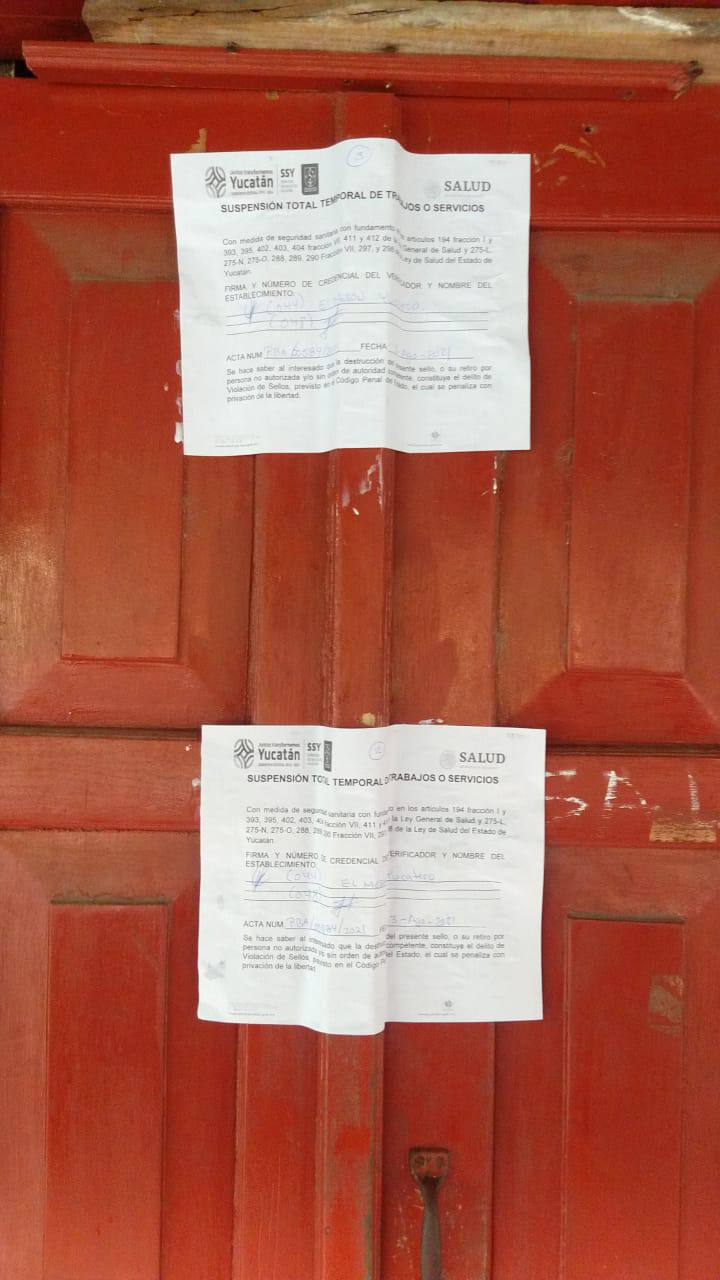 3
Juntos transformemos
Yucatán
SSY
SALUD
SUSPENSIÓN TOTAL TEMPORAL DE TRABAJOS O SERVICIOS
Con medida de seguridad sanitaria con fundamento en los artículos 194 fracción I y
393, 395, 402, 403, 404 fracción VII, 411 y 412 de la Ley General de Salud y 275-L,
275-N, 275-O, 288, 289, 290 Fracción VII, 297, y 298 de la Ley de Salud del Estado de
Yucatán.
FIRMA Y NÚMERO DE CREDENCIAL DEL VERIFICADOR Y NOMBRE DEL
ESTABLECIMIENTO:
(044) El
(048)
ACTA NUM PBA/00584/2021 FECHA 3-Ago-2021
Se hace saber al interesado que la destrucción del presente sello, o su retiro por
persona no autorizada y/o sin orden de autoridad competente, constituye el delito de
Violación de Sellos, previsto en el Código Penal del Estado, el cual se penaliza con
privación de la libertad.
2
Juntos transformemos
Yucatán
SSY
SALUD
SUSPENSIÓN TOTAL TEMPORAL D TRABAJOS O SERVICIOS
Con medida de seguridad sanitaria con fundamento en los artículos 194 fracción I y
393, 395, 402, 403, 404 fracción VII, 411 y la Ley General de Salud y 275-L,
275-N, 275-O, 288, 289, 290 Fracción VII, 297 de la Ley de Salud del Estado de
Yucatán.
FIRMA Y NÚMERO DE CREDENCIAL DEL VERIFICADOR Y NOMBRE DEL
ESTABLECIMIENTO:
(044) El Yucateco
(048)
ACTA NUM PBA/00584/2021 FE 3-Ago-2021
Se hace saber al interesado que la destrucción del presente sello, o su retiro por
persona no autorizada y/o sin orden de autoridad competente, constituye el delito de
Violación de Sellos, previsto en el Código Penal del Estado, el cual se penaliza con
privación de la libertad.